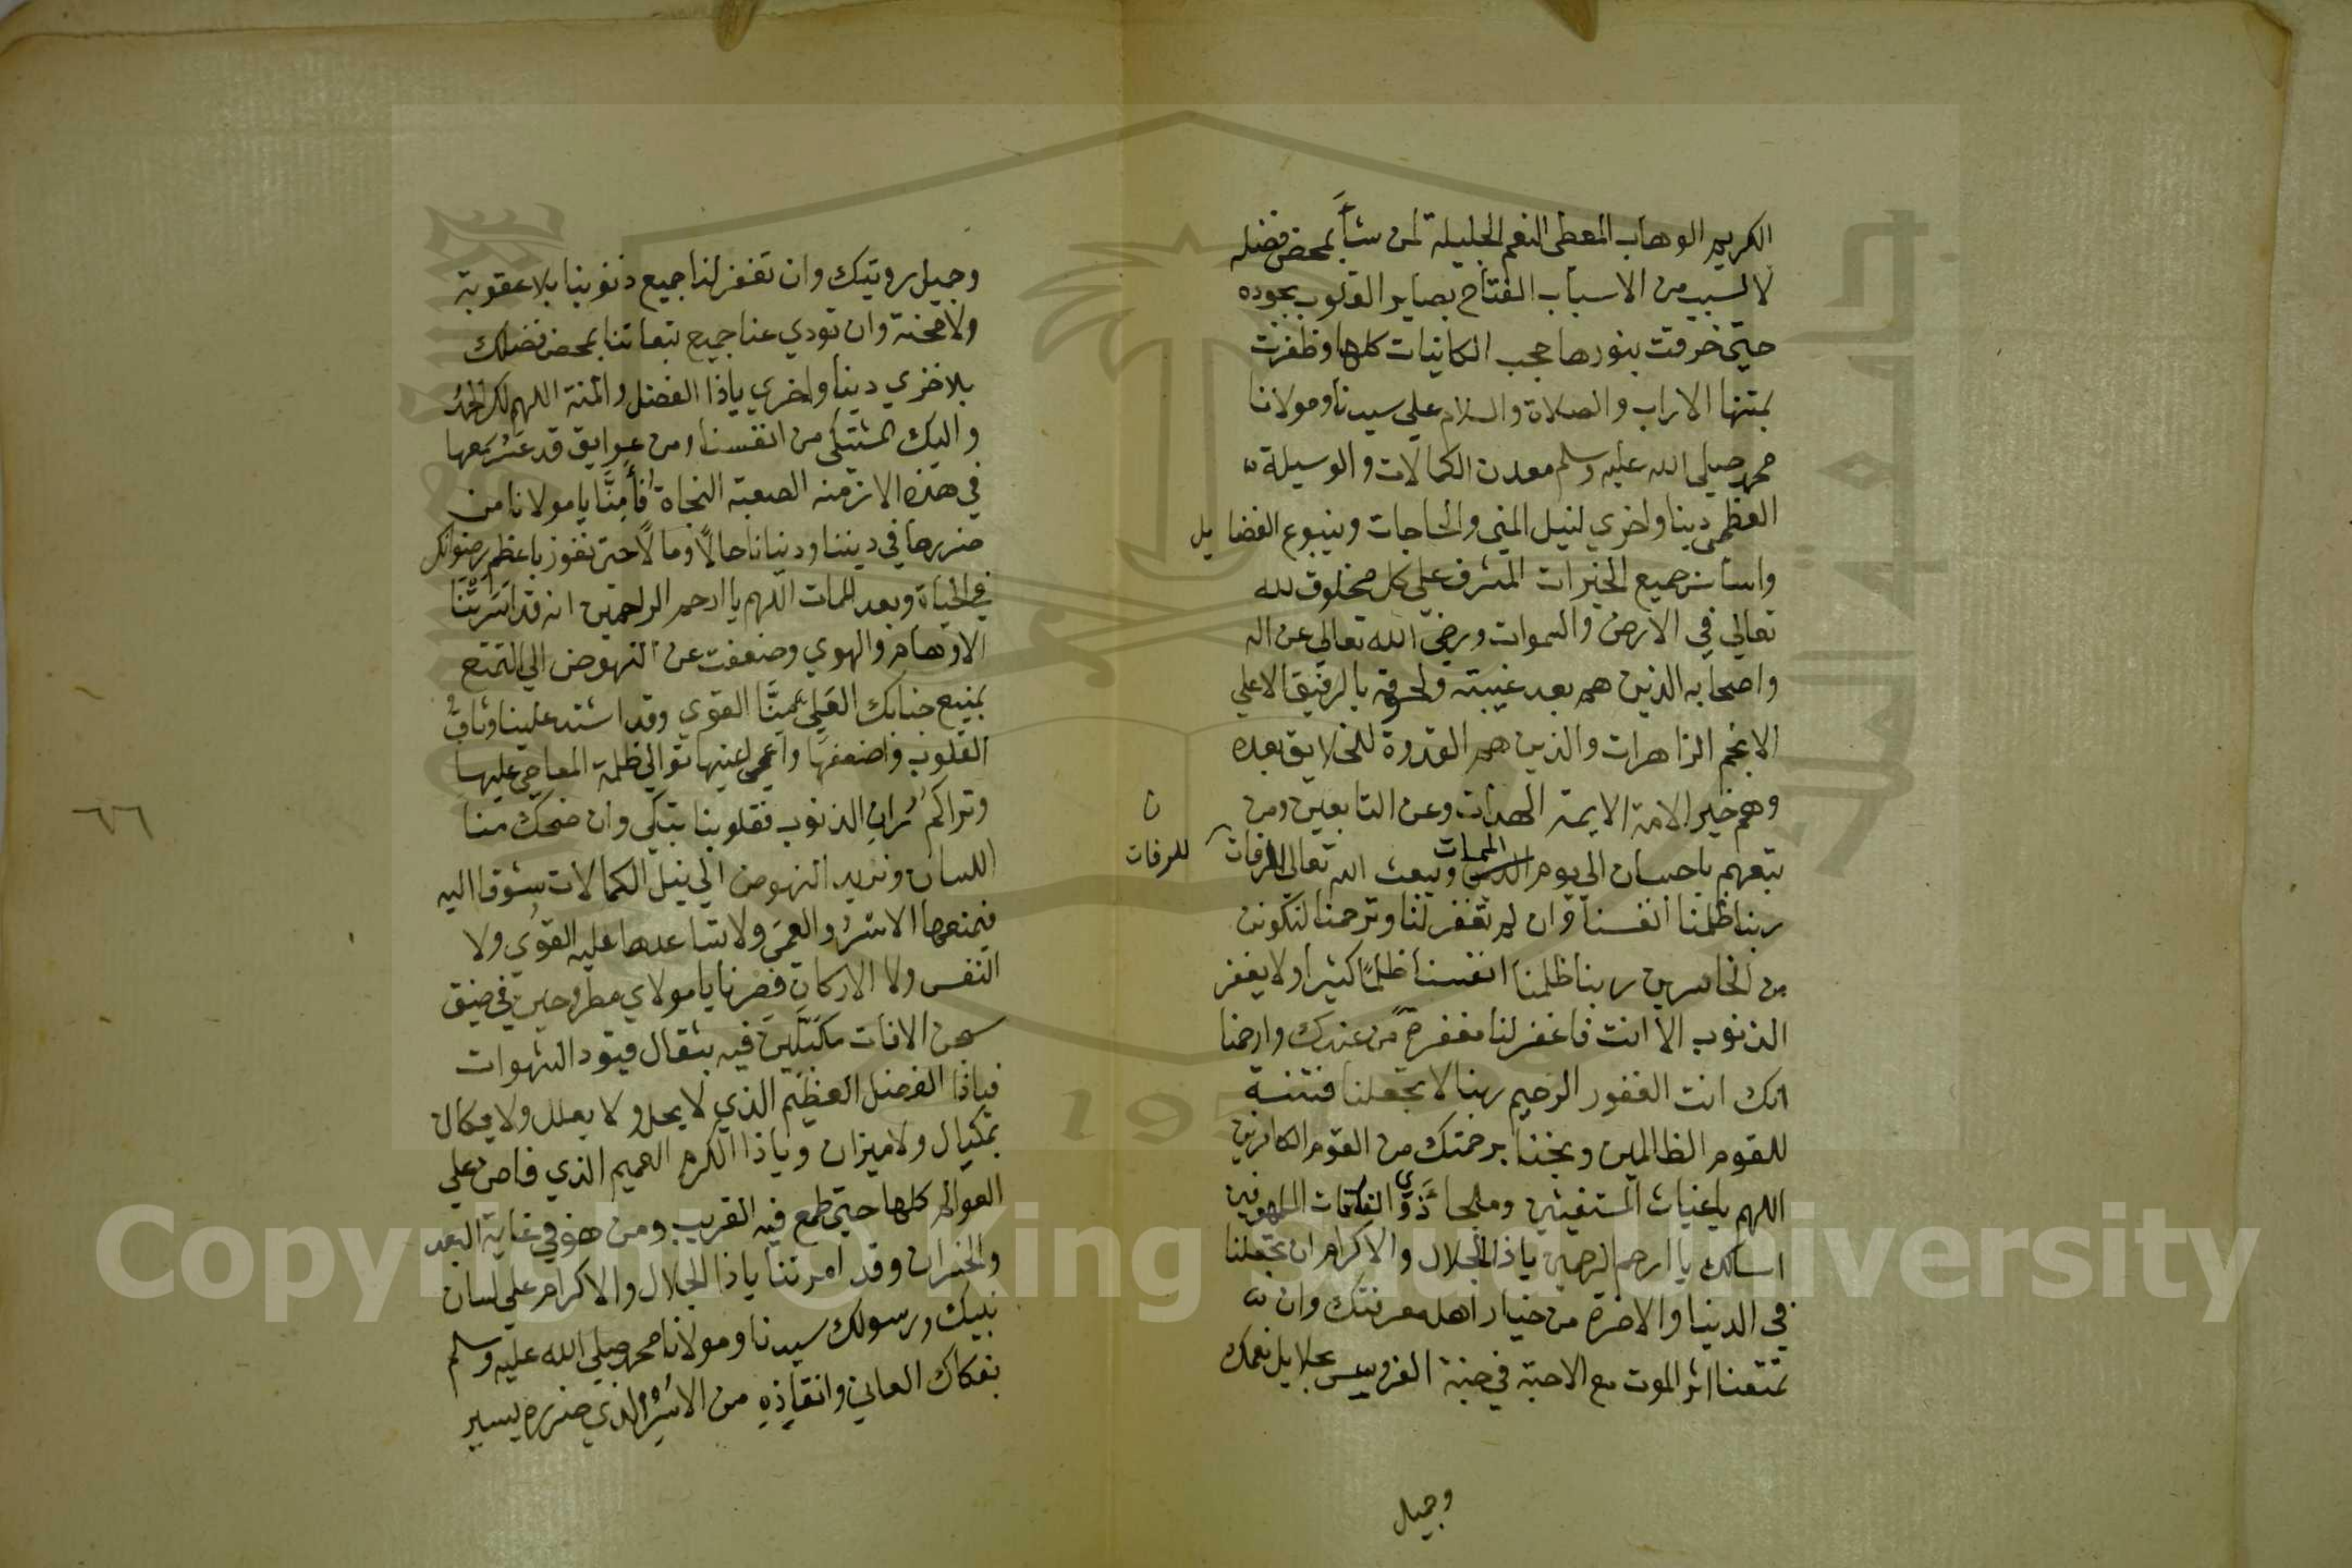 الكريم الوهاب المعطى النعم الجليلة لمن شأ بمحض فضله
لا لسبب من الاسباب الفتاح بصاير القلوب بجوده
حتى خرقت بنورها حجب الكاينات كلها وظفرت
بمتنها الاراب والصلاة والسلام علي سيدنا ومولانا
محمد صلى الله عليه وسلم معدن الكمالات والوسيلة
العظمى دينا واخري لنيل المني والحاجات وينبوع الفضايل
واساس جميع الخيرات المشرف علي كل مخلوق لله
تعالي في الارض والسموات ورضي الله تعالي عن اله
واصحابه الذين هم بعد غيبته ولحوقه بالرفيق الاعلي
الانجم الزاهرات والذين هم القدوة للخلايق بعده
وهم خير الامة الايمة الهداة وعن التابعين ومن
تبعهم باحسان الى يوم الممات ويبعث الله تعالى الرفات
ن
للرفات
ربنا ظلمنا انفسنا وان لم تغفر لنا وترحمنا لنكونن
من الخاسرين ربنا ظلمنا انفسنا ظلمًا كثيرا ولا يغفر
الذنوب الا انت فاغفر لنا مغفرة من عندك وارحمنا
انك انت الغفور الرحيم ربنا لا تجعلنا فتنة
للقوم الظالمين ونجنا برحمتك من القوم الكافرين
اللهم يا غياث المستغيثين وملجا ذوي الفاقات الملهوفين
اسالك يا ارحم الرحمين يا ذا الجلال والاكرام ان تجعلنا
في الدنيا والاخرة من خيار اهل معرفتك وان
تمتعنا اثر الموت مع الاحبة في جنة الفردوس بجلايل نعمك
وجميل
وجميل رويتك وان تغفر لنا جميع ذنوبنا بلا عقوبة
ولا محنة وان تودي عنا جميع تبعاتنا بمحض فضلك
بلا خزي دينا واخري ياذا الفضل والمنة اللهم لك الحمد
واليك المشتكى من انفسنا ومن عوايق قد عسر معها
في هذه الازمنه الصعبة النجاة فأمنا يا مولانا من
ضررها في ديننا ودنيانا حالًا ومالًا حتى نفوز باعظم رضوانك
في الحياة وبعد الممات اللهم يا ارحم الراحمين انه قد اسرتنا
الاوهام والهوي وضعفت عن النهوض الي التمتع
بمنيع جنابك العلي منا القوي وقد اشتد علينا وثاق
القلوب فاضعفها واعمى اعينها توالي ظلمة المعاصي عليها
وتراكم ران الذنوب فقلوبنا تبكى وان ضحك منا
اللسان وتريد النهوض الي نيل الكمالات شوقا اليه
فيمنعها الاسر والعمى ولا تساعدها عليه القوى ولا
النفس ولا الاركان فصرنا يا مولاي مطروحين في ضيق
سجن الافات مكبلين فيه بثقال قيود الشهوات
فياذا الفضل العظيم الذي لا يحد ولا يعلل ولا يكال
بمكيال ولا ميزان وياذا الكرم العميم الذي فاض علي
العوالم كلها حتى طمع فيه القريب ومن هو في غاية البعد
والخسران وقد امرتنا ياذا الجلال والاكرام علي لسان
نبيك ورسولك سيدنا ومولانا محمد صلي الله عليه وسلم
بفكاك العاني وانقاذه من الاسر الذي ضرره يسير
٦٦
Copyright © King Saud University